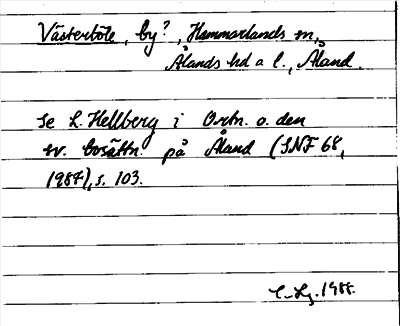 Västerböle, by?, Hammarlands sn,
Ålands hd a l., Åland.
Se L. Hellberg i Ortn. o. den
sv. bosättn. på Åland (SNF 68,
1987), s. 103.
1988.